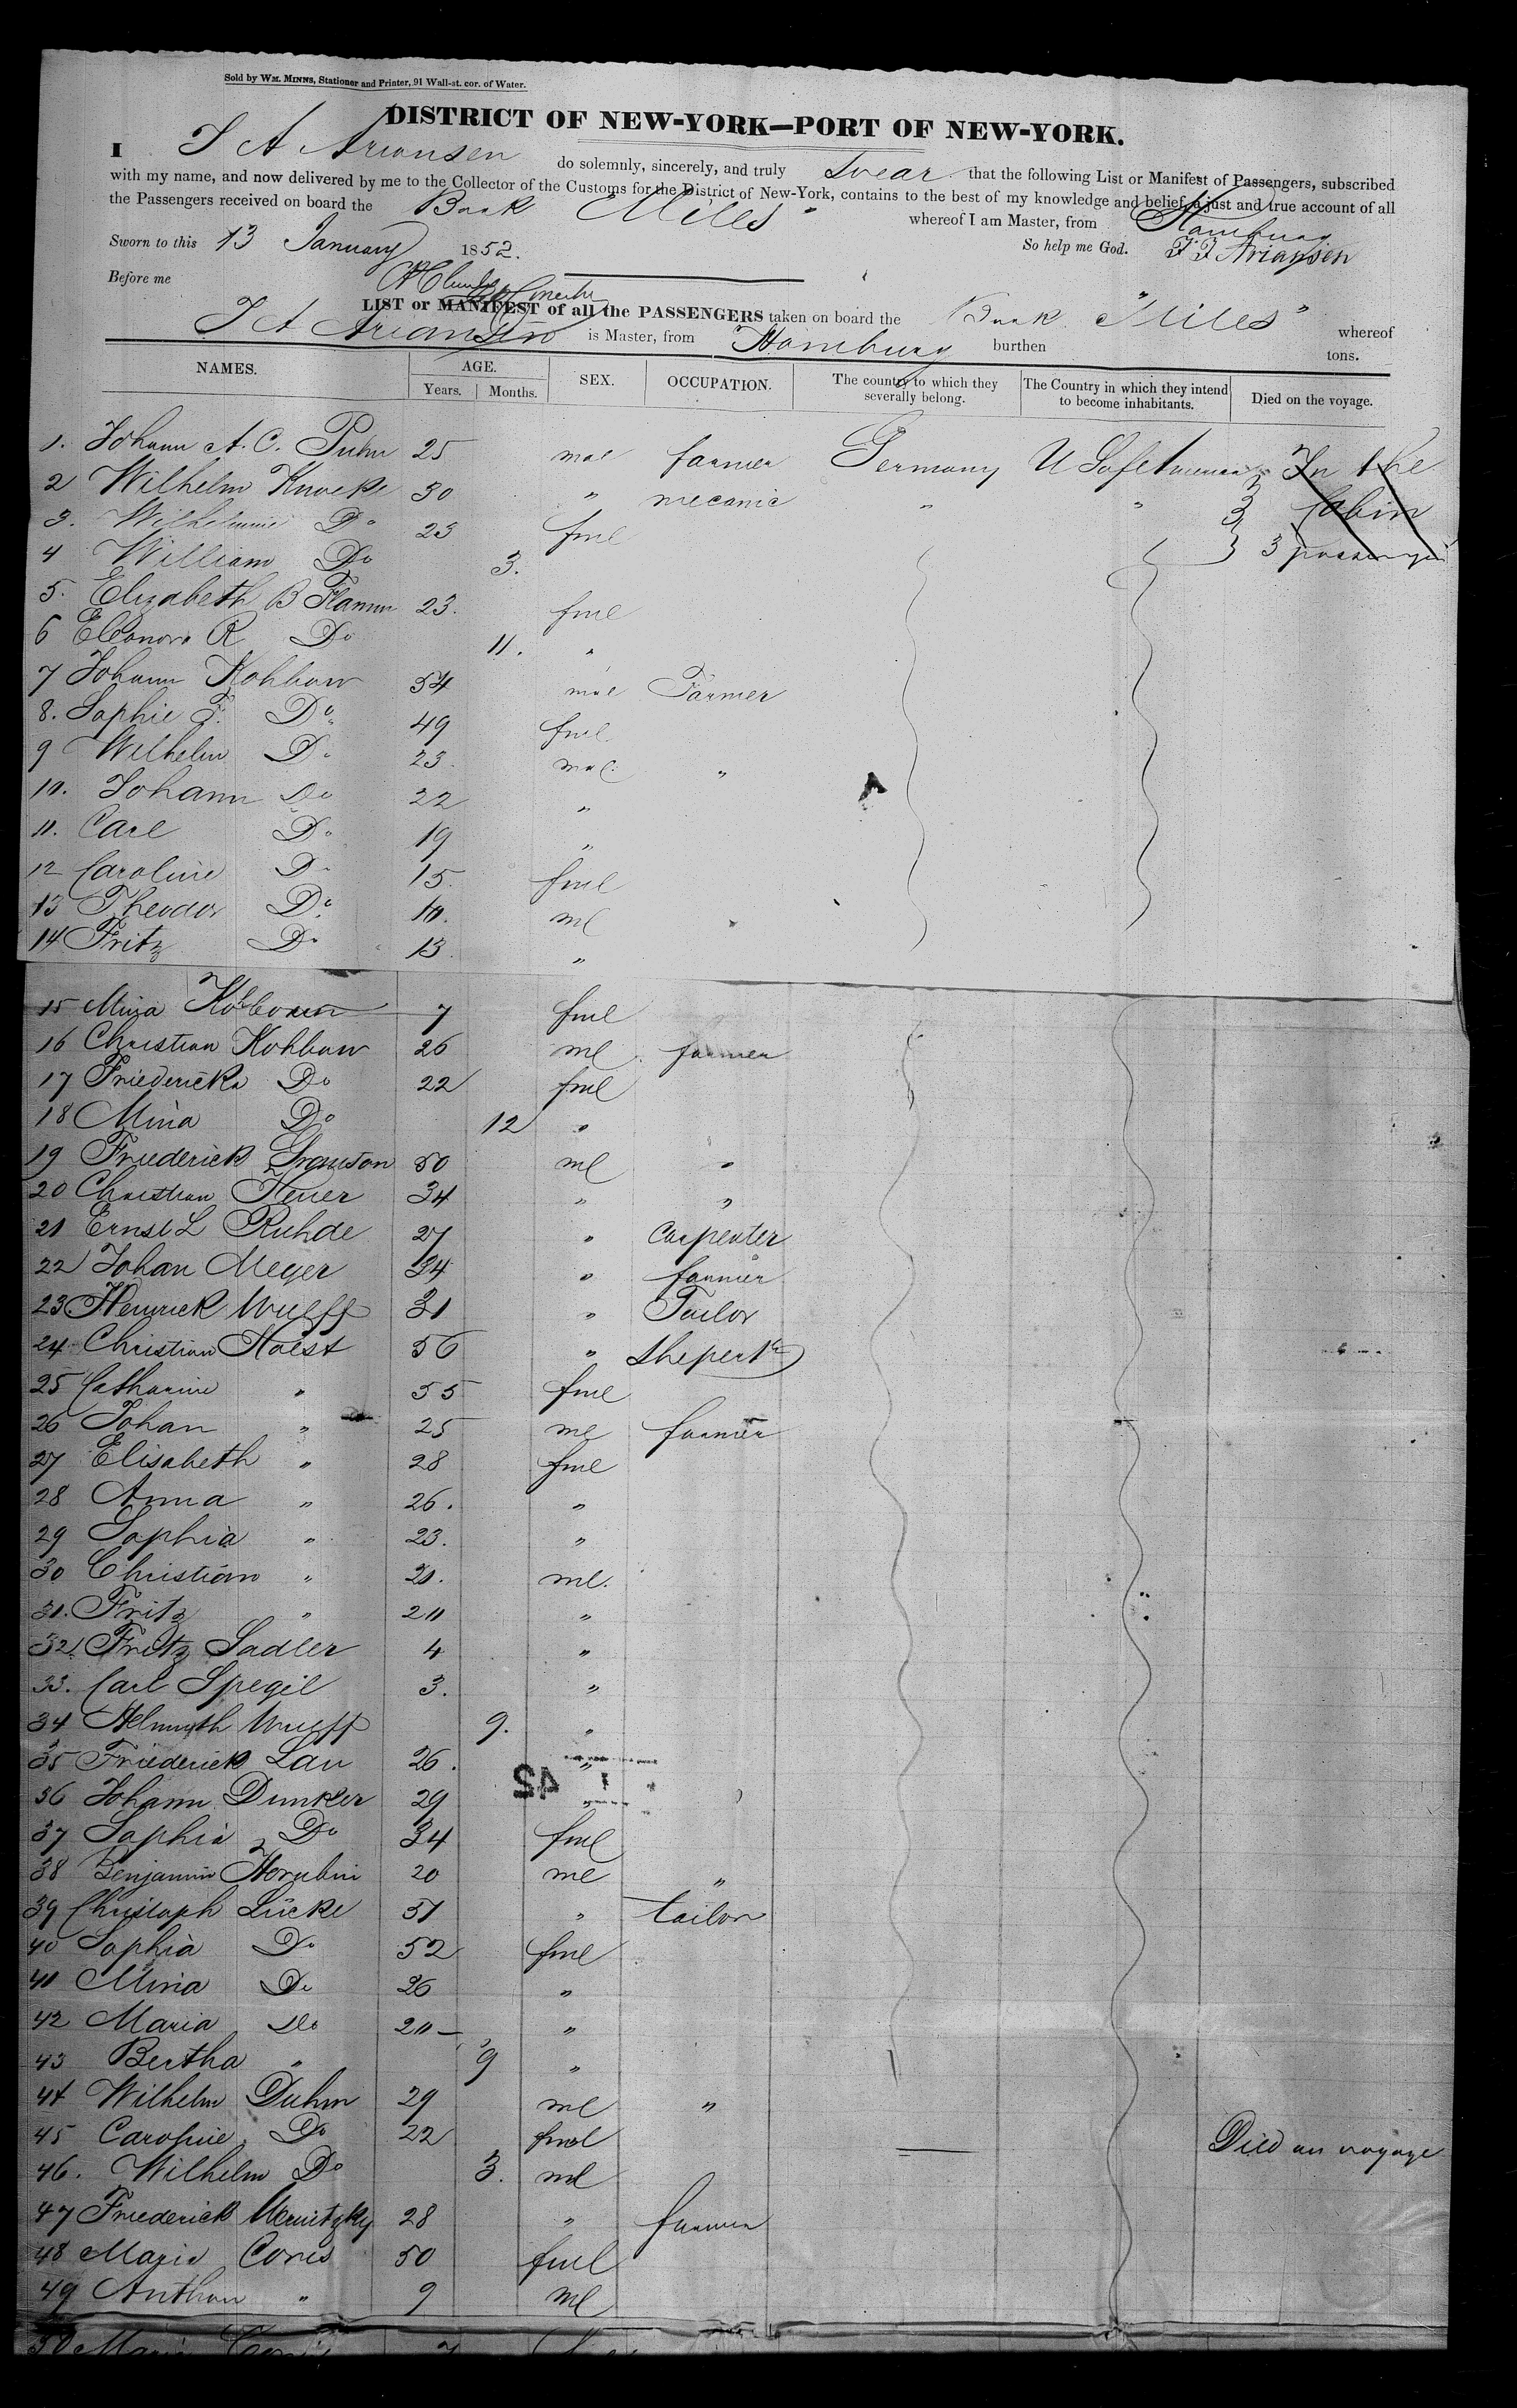 Sold by WM. MINNS, Stationer and Printer, 91 Wall-st. cor. of Water.
DISTRICT OF NEW-YORK—PORT OF NEW-YORK.
I J A Ariansen do solemnly, sincerely, and truly Swear that the following List or Manifest of Passengers, subscribed
with my name, and now delivered by me to the Collector of the Customs for the District of New-York, contains to the best of my knowledge and belief, a just and true account of all
the Passengers received on board the Bark Miles whereof I am Master, from Hamburg
Sworn to this 13 January 1852. So help me God. Ariansen
Before me
LIST or MANIFEST of all the PASSENGERS taken on board the Bark "Miles" whereof
J A Ariansen is Master, from Hamburg burthen tons.
NAMES. AGE. SEX. OCCUPATION. The country to which they severally belong. The Country in which they intend to become inhabitants. Died on the voyage.
Years. Months.
1. Johann A. C. 25 mal farmer Germany U S of America In the
2 Wilhelm Knocke 30 " mecanic " " Cabin
3. Wilhelmine Do 23 fml 3 passenger
4 William Do 3.
5. Elizabeth B Flamm 23. fml
6 Eleonora R Do 11. "
7 Johann Kohbow 54 mal Farmer
8. Sophie F. Do 49 fml
9 Wilhelm Do 23. mal. "
10. Johann Do 22 "
11. Carl Do 19 "
12 Caroline Do 15. fml
13 Theodor Do 10. ml
14 Fritz Do 13. "
15 Mina 7 fml
16 Christian Kohbow 26 ml farmer
17 Friedericka Do 22 fml
18 Mina Do 12 "
19 Friederick 50 ml "
20 Christian Heuer 34 " "
21 Ernst L Ruhde 27 " Carpenter
22 Johan Meyer 34 " farmer
23. Henrick Wulff 31 " Tailor
24 Christian Holst 56 "
25 Catharine " 55 fml
26 Johan " 25 ml farmer
27 Elisabeth " 28 fml
28 Anna " 26. "
29 Sophia " 23. "
30 Christian " 21. ml.
31. Fritz " 20 "
32. Fritz Sadler 4 "
33. Carl Spegil 3. "
34 Helmuth Wulff 9. "
35 Friederick Lau 26. "
36 Johann Dunker 29 "
37 Sophia Do 34 fml
38 Benjamin 20 ml "
39 Christoph Lücke 51 " tailor
40 Sophia Do 52 fml
41 Mina Do 26 "
42 Maria Do 20 "
43 Bertha " 9 "
44 Wilhelm Duhm 29 ml "
45 Caroline Do 22 fml Died on voyage
46. Wilhelm Do 3. ml
47 Friederick 28 " farmer
48 Maria Coris 50 fml
49 Anthon " 9 ml
50 Maria Coris 7
42